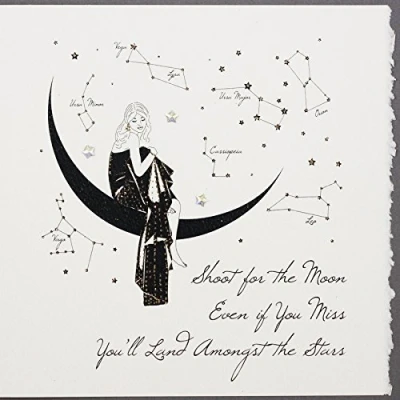 Vega
Lyra
Ursa Minor
Ursa Major
Orion
Cassiopeia
Virgo
Leo
Shoot for the Moon
Even if You Miss
You'll Land Amongst the Stars